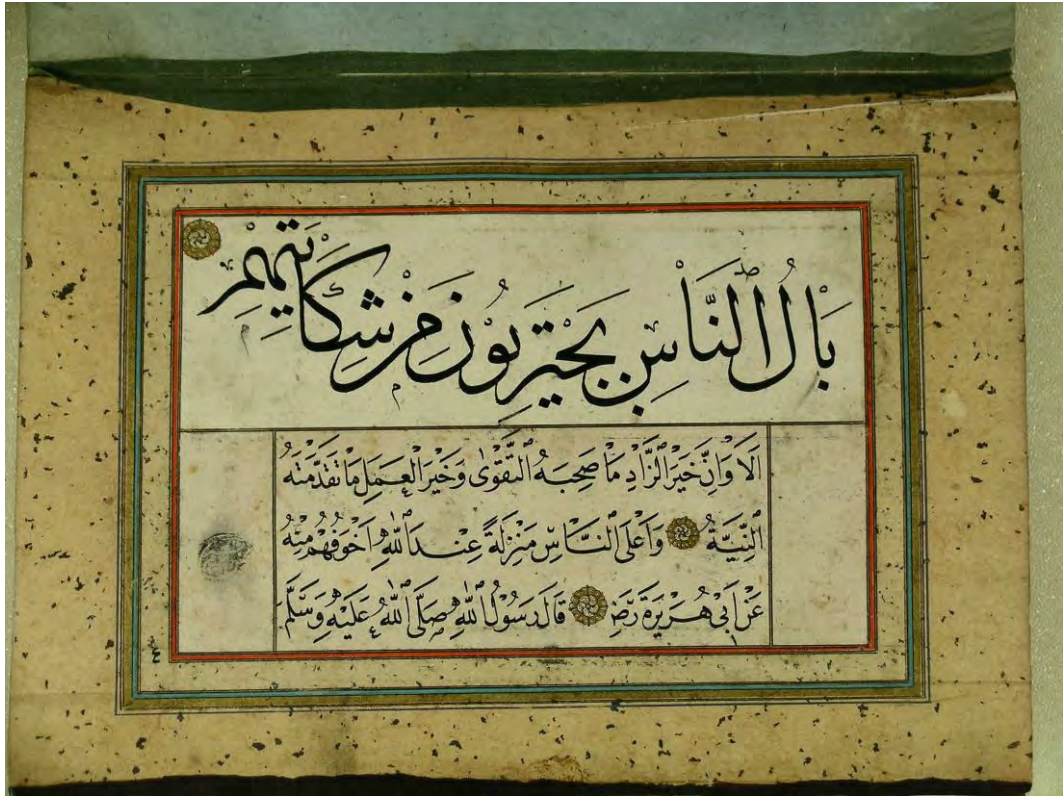 بَالُ النَّاسِ مِنْ شِكَايَتِهِمْ
اَلَا وَاِنَّ خَيْرَ الزَّادِ مَا صَحِبَهُ التَّقْوٰى وَخَيْرَ الْعَمَلِ مَا تَقَدَّمَتْهُ
النِّيَّةُ وَاَعْلَى النَّاسِ مَنْزِلَةً عِنْدَ اللّٰهِ اَخْوَفُهُمْ مِنْهُ
عَنْ اَبِى هُرَيْرَةَ رَضِ قَالَ رَسُولُ اللّٰهِ صَلَّى اللّٰهُ عَلَيْهِ وَسَلَّمَ
٤